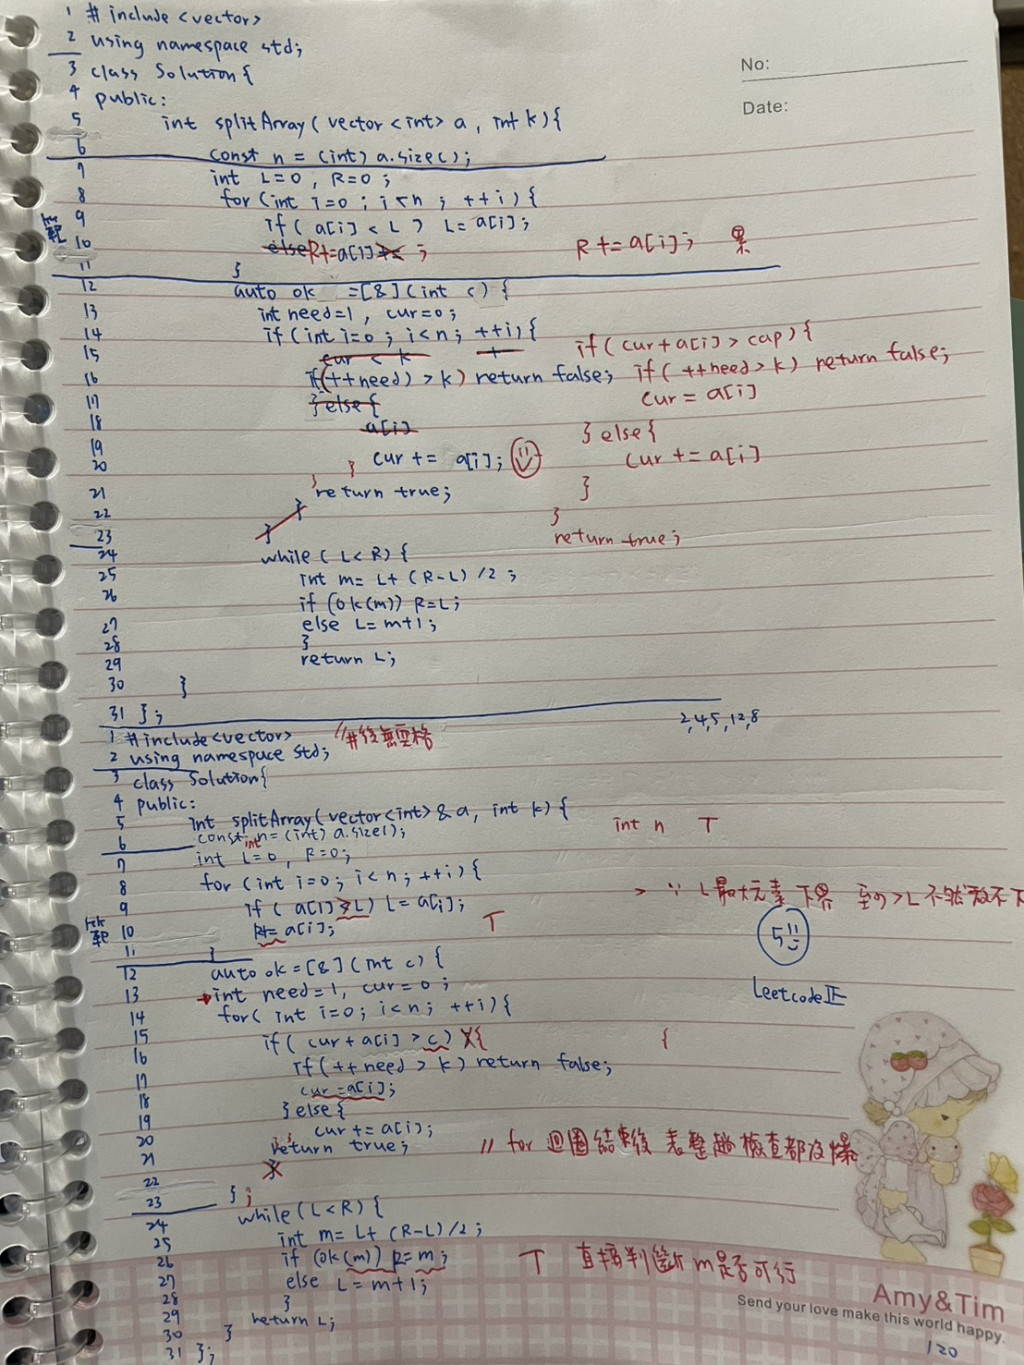 No:
Date:
1 #include<vector>
2 using namespace std;
3 class Solution{
4 public:
5 int splitArray( vector<int> a, int k){
6 const n = (int) a.size();
7 int L=0, R=0;
8 for (int i=0; i<n; ++i){
9 if( a[i] < L ) L= a[i];
10 else R+=a[i] ; R += a[i]; 累
11 }
12 auto ok =[&](int c){
13 int need=1, cur=0;
14 if(int i=0; i<n; ++i){
15 cur < k if(cur+a[i]>cap){
16 if(++need) > k) return false; if(++need>k) return false;
17 }else{ cur = a[i]
18 a[i] }else{
19
20 } cur += a[i]; cur += a[i]
21 } return true; }
22 } }
23 } return true;
24 while( L<R){
25 int m= L+ (R-L)/2;
26 if (ok(m)) R=L;
27 else L=m+1;
28 }
29 return L;
30 }
31 };
2,4,5,12,8
1 #include<vector> //#後無空格
2 using namespace std;
3 class Solution{
4 public:
5 int splitArray(vector<int>& a, int k){
6 const int n=(int) a.size(); int n T
7 int L=0, R=0;
8 for (int i=0; i<n; ++i){
9 if( a[i]>L) L= a[i]; > ∵ L最大元素 下界 至少>L 不然放不下
10 R+= a[i]; T 5
11 }
12 auto ok=[&](int c){
13 int need=1, cur=0; Leetcode正
14 for( int i=0; i<n; ++i){
15 if( cur+a[i]>c){ {
16 if(++need>k) return false;
17 cur=a[i];
18 }else{
19 cur += a[i];
20 return true; // for 迴圈結束後 表整趟檢查都沒爆
21 }
22
23 };
24 while(L<R){
25 int m= L+ (R-L)/2;
26 if (ok(m)) R=m; T 直接判斷m是否可行
27 else L=m+1;
28 }
29 return L;
30 }
31 };
Amy&Tim
Send your love make this world happy.
120